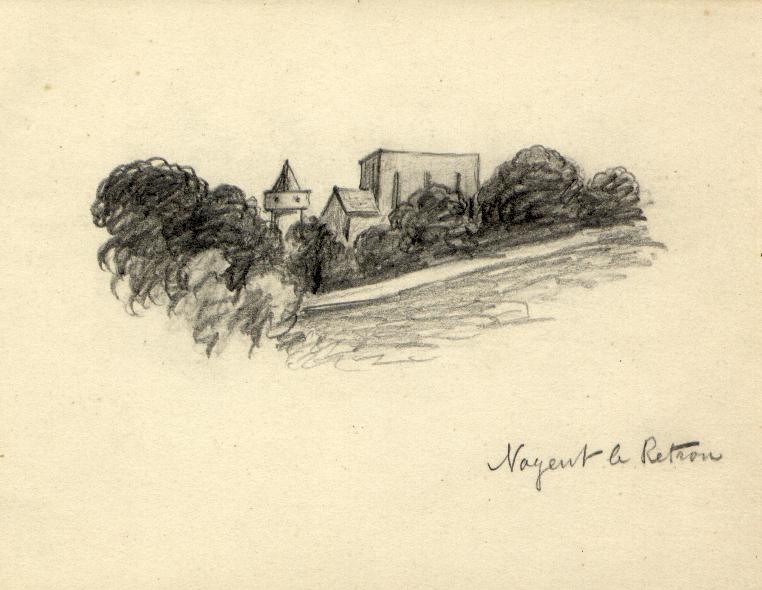 Nogent le Retrou